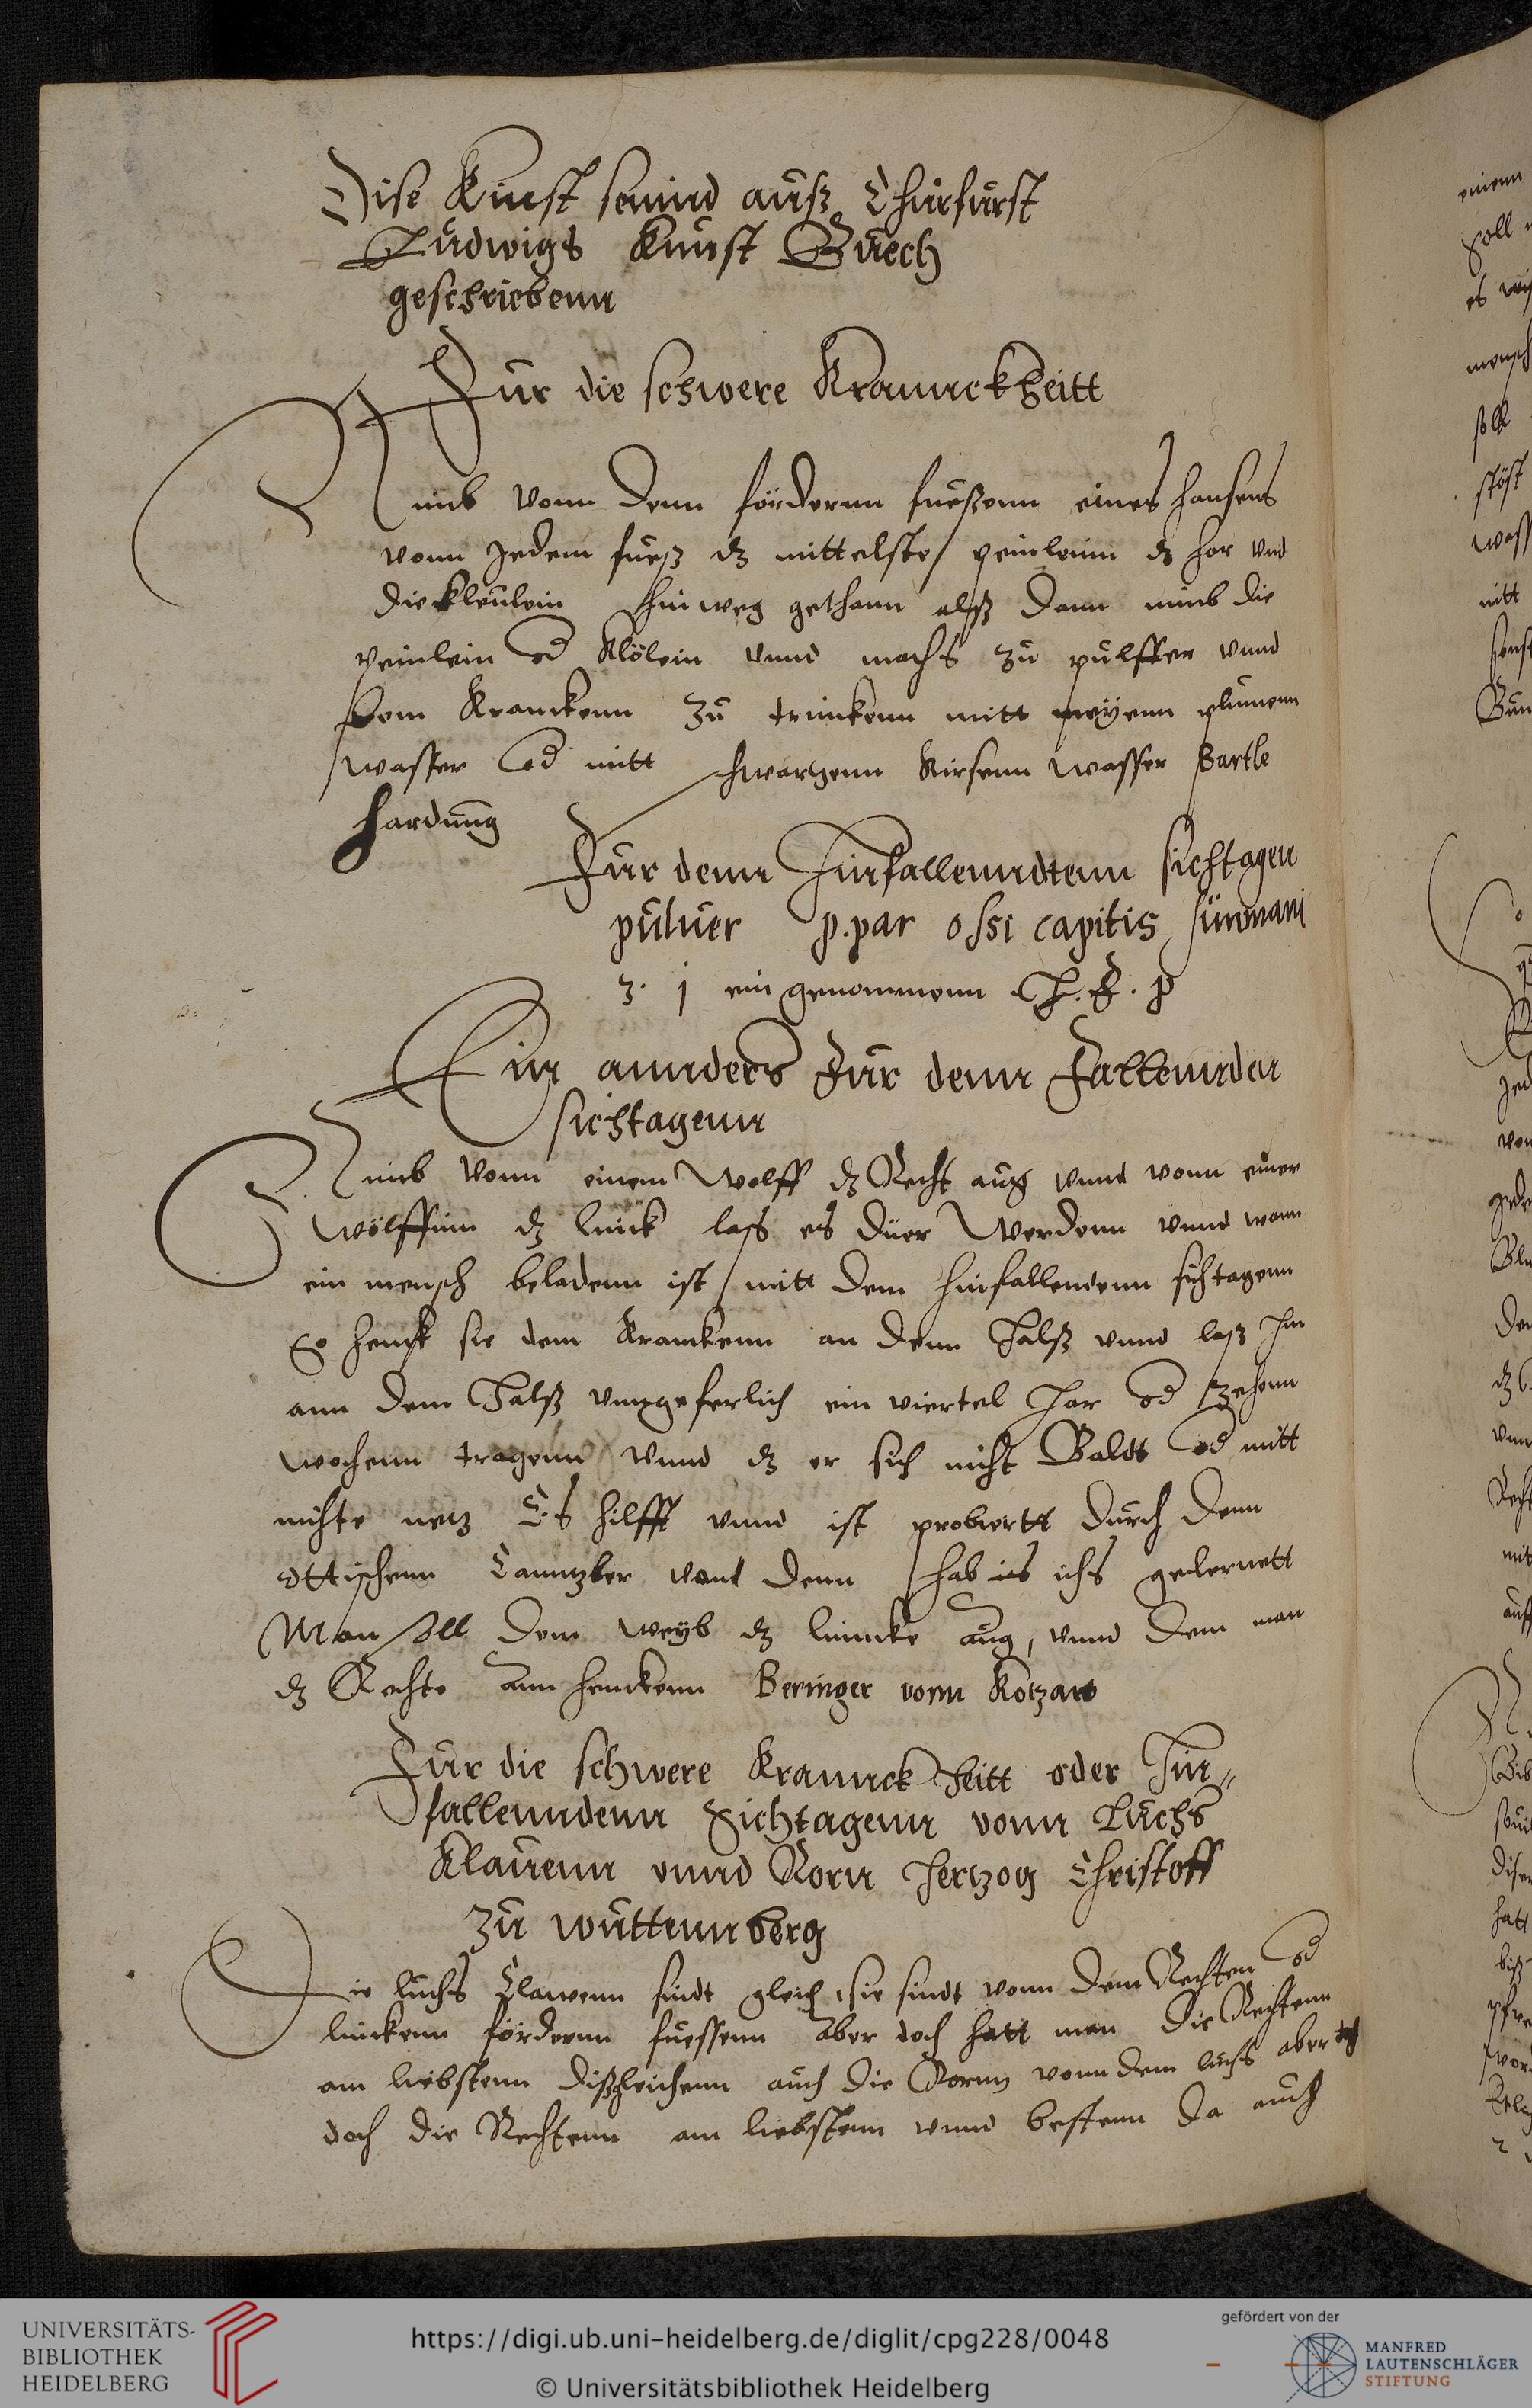 Dise Kunst seinnd auß Churfurst
Ludwigs Kunst Buech
geschriebenn
Fur die schwere Krannckheitt
Nimb vonn denn fördernn fueßenn eines hansens
vonn Jedem fueß dz mittelste peinlenn dz har vnd
die kleulein hinweg gethann alß dann nimb die
peinlein od Klölein vnnd machs zu pulffer vnnd
dem Kranckenn zu trinckenn mitt meyenn plumenn
wasser od mitt schwartzenn Kirsenn wasser Bartle
Hardung
Fur denn Hinfallenndtenn sichtagen
puluer p.par ossi capitis humani
3. j ein genommenn C. H. P
Ein annders Fur denn Fallennden
sichtagenn
Nimb vonn einem Wolff dz Recht aug vnnd vonn einer
wölffinn dz linck lass es dürr Werdenn vnnd wann
ein mensch beladenn ist mitt dem hinfallendenn sichtagenn
So henck sie dem Kranckenn an denn Halß vnnd laß Im
ann dem Halß vngeferlich ein viertel Jar od zehenn
wochenn tragenn vnnd dz er sich nicht Baldt od mitt
nichte netz Es hilfft vnnd ist probiertt durch denn
ottischenn Canntzler vonn denn hab ichs gelernett
Man soll dem weyb dz lincke aug, vnnd dem man
dz Rechte ann henckenn Beringer vonn Kotzaw
Fur die schwere Kranckheitt oder Hin„
fallenndenn Sichtagenn vonn Luchs
Klauenn vnnd Hornn Hertzog Christoff
zu wuttennberg
Die luchs Clawenn sindt gleich sie sindt vonn dem Rechten od
linckenn förderenn fuessenn Aber doch hatt man die Rechtenn
am liebstenn dißgleichenn auch die Hornn vonn dem luchs aber
doch die Rechtenn am liebstenn vnnd bestenn da auch
einenn
soll
es
mensch
soll
stöst
wass
nitt
sonst
UNIVERSITÄTS-
BIBLIOTHEK
HEIDELBERG
https://digi.ub.uni-heidelberg.de/diglit/cpg228/0048
© Universitätsbibliothek Heidelberg
gefördert von der
MANFRED
LAUTENSCHLÄGER
STIFTUNG